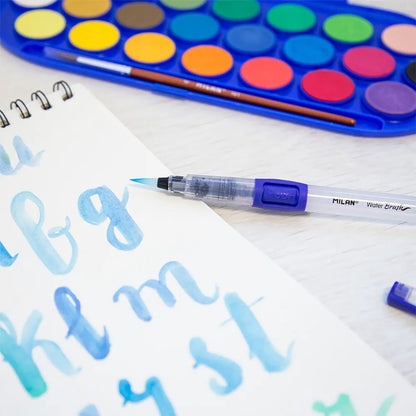 MILAN
MILAN Water Brush
b g
k l m
r s t